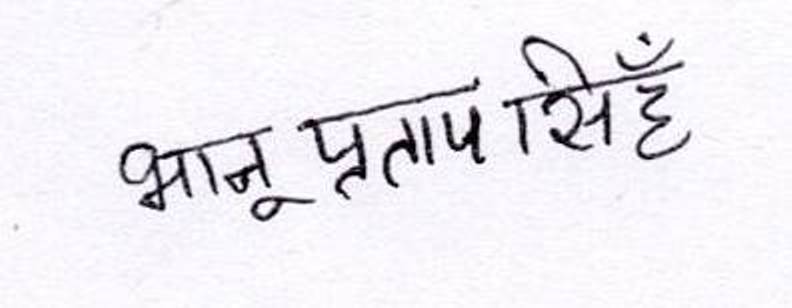 भानू प्रताप सिहँ